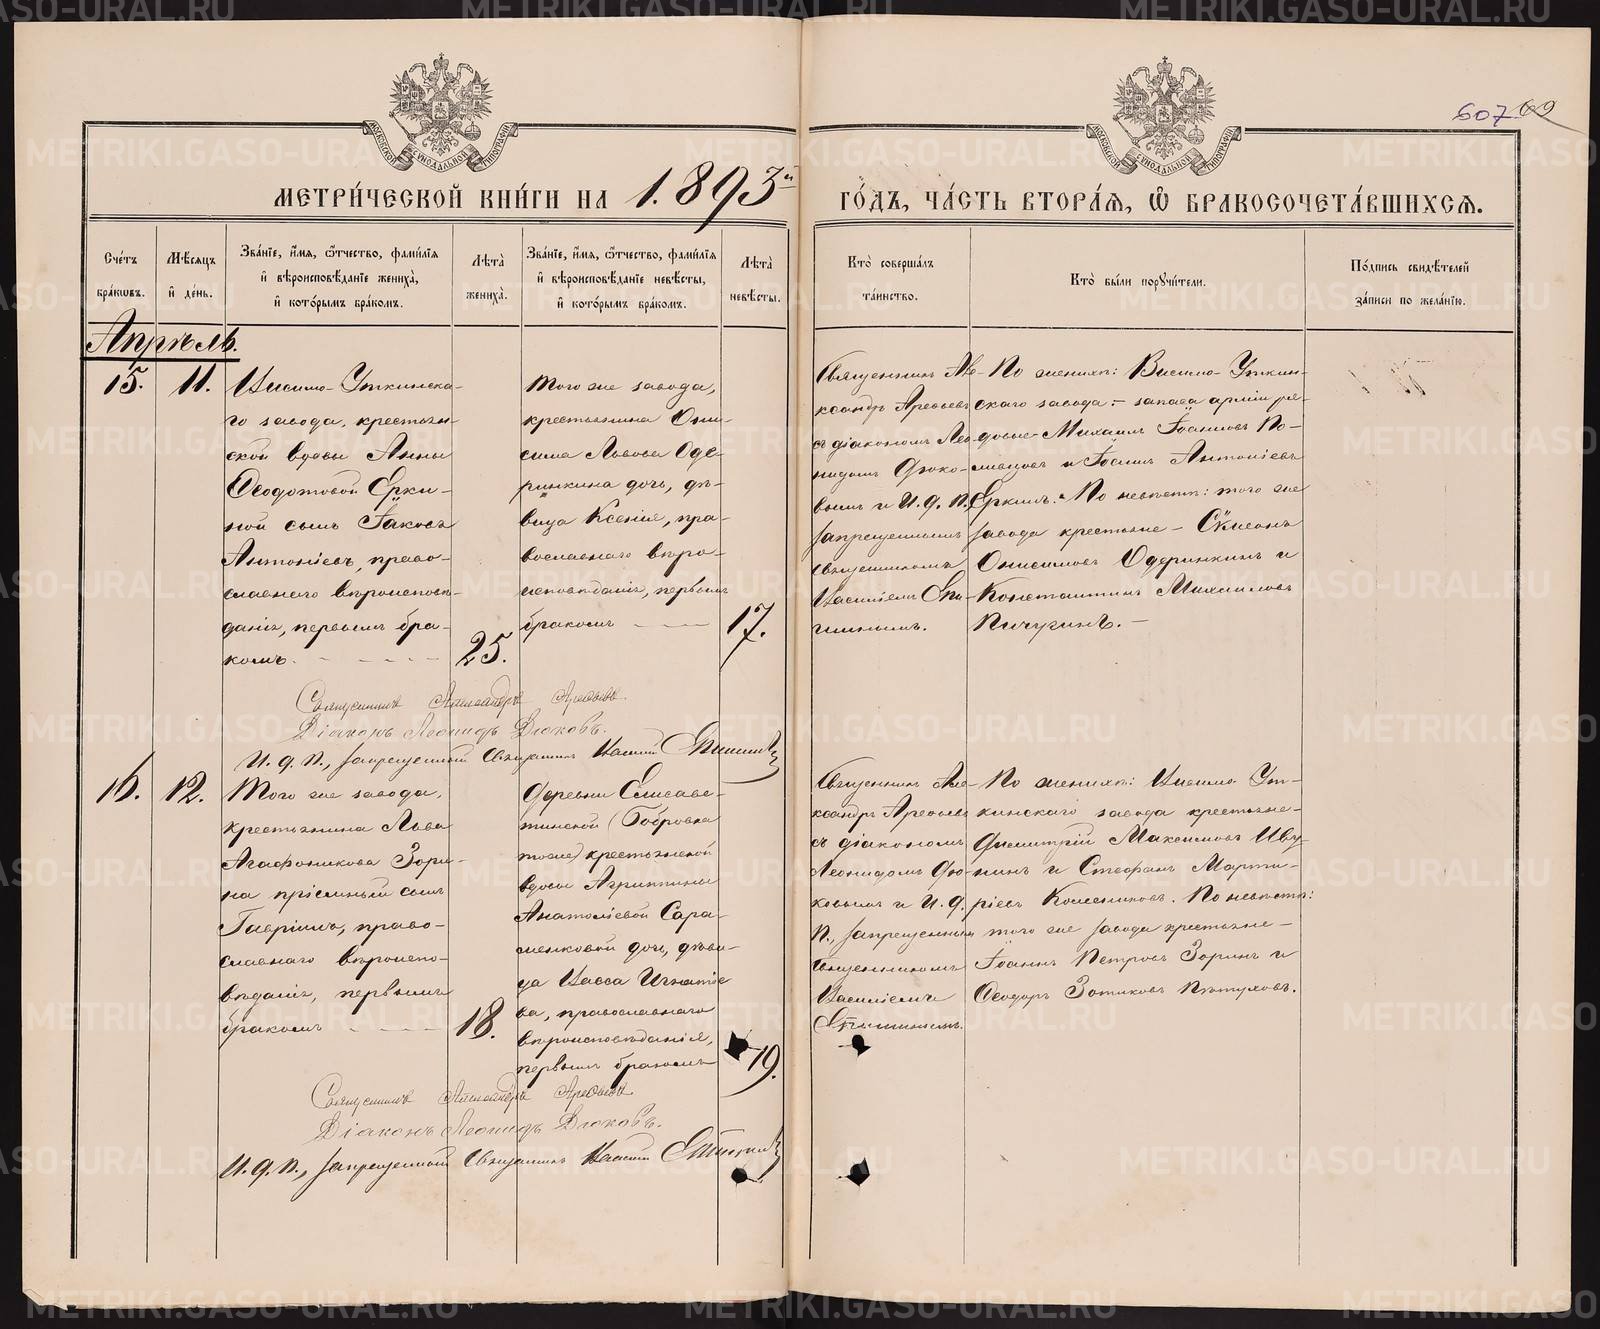 МЕТРИ́ЧЕСКОЙ КНИ́ГИ НА 1893й ГО́ДЪ, ЧА́СТЬ ВТОРА́Я, Ѡ БРАКОСОЧЕТА́ВШИХСЯ.
607
69
Сче́тъ бра́ковъ.
Мѣ́сяцъ и де́нь.
Зва́ніе, и́мя, ѻ́тчество, фами́лія и вѣроисповѣ́даніе жениха̀, и кото́рымъ бра́комъ.
Лѣта̀ жениха̀.
Зва́ніе, и́мя, ѻ́тчество, фами́лія и вѣроисповѣ́даніе невѣ́сты, и кото́рымъ бра́комъ.
Лѣта̀ невѣ́сты.
Кто̀ соверша́лъ та́инство.
Кто̀ бы́ли поручи́тели.
По́дпись свидѣ́телей за́писи по жела́нію.
Апрѣль.
15.
11.
Висимо-Уткинска-
го завода, крестьян-
ской вдовы Анны
Ѳеодотовой Ерки-
ной сынъ Іаковъ
Антоніевъ, право-
славнаго вѣроисповѣ-
данія, первымъ бра-
комъ.
25.
Того же завода,
крестьянина Они-
сима Львова Оде-
ринкина дочь, дѣ-
вица Ксенія, пра-
вославнаго вѣро-
исповѣданія, первымъ
бракомъ
17.
Священникъ Але-
ксандръ Арефьевъ
съ діакономъ Лео-
нидомъ Дюко-
вымъ и И. д. п.
запрещеннымъ
священникомъ
Василіемъ Епи-
шинымъ.
По женихѣ: Висимо-Уткин-
скаго завода: запаса арміи ря-
довые Михаилъ Іоанновъ По-
ливцовъ и Іоаннъ Антоніевъ
Еркинъ. По невѣстѣ: того же
завода крестьяне -
Онисимовъ Одеринкинъ и
Константинъ Михаиловъ
Пичугинъ.
Священникъ Александръ Арефьевъ.
Діаконъ Леонидъ Дюковъ.
И. д. п., запрещенный священникъ Василій Епишинъ
16.
12.
Того же завода,
крестьянина Льва
Агафоникова Зори-
на пріемный сынъ
Гавріилъ, право-
славнаго вѣроиспо-
вѣданія, первымъ
бракомъ
18.
Деревни Елисаве-
тинской (Бобровка
тоже) крестьянской
вдовы Агриппины
Анатоліевой Сара-
пенковой дочь, дѣви-
ца Васса Игнатіе
ва, православнаго
вѣроисповѣданія,
первымъ бракомъ
19.
Священникъ Але-
ксандръ Арефьевъ
съ діакономъ
Леонидомъ Дю-
ковымъ и И. д.
п., запрещеннымъ
священникомъ
Василіемъ
Епишинымъ.
По женихѣ: Висимо Ут-
кинскаго завода крестьяне-
Димитрій Максимовъ Ив
нинъ и Стефанъ Марти-
ріевъ Колесниковъ. По невѣстѣ:
того же завода крестьяне -
Іоаннъ Петровъ Зоринъ и
Ѳеодоръ Зотиковъ Пѣтуховъ.
Священникъ Александръ Арефьевъ
Діаконъ Леонидъ Дюковъ.
И. д. п., запрещенный священникъ Василій Епишинъ
METRIKI.GASO-URAL.RU